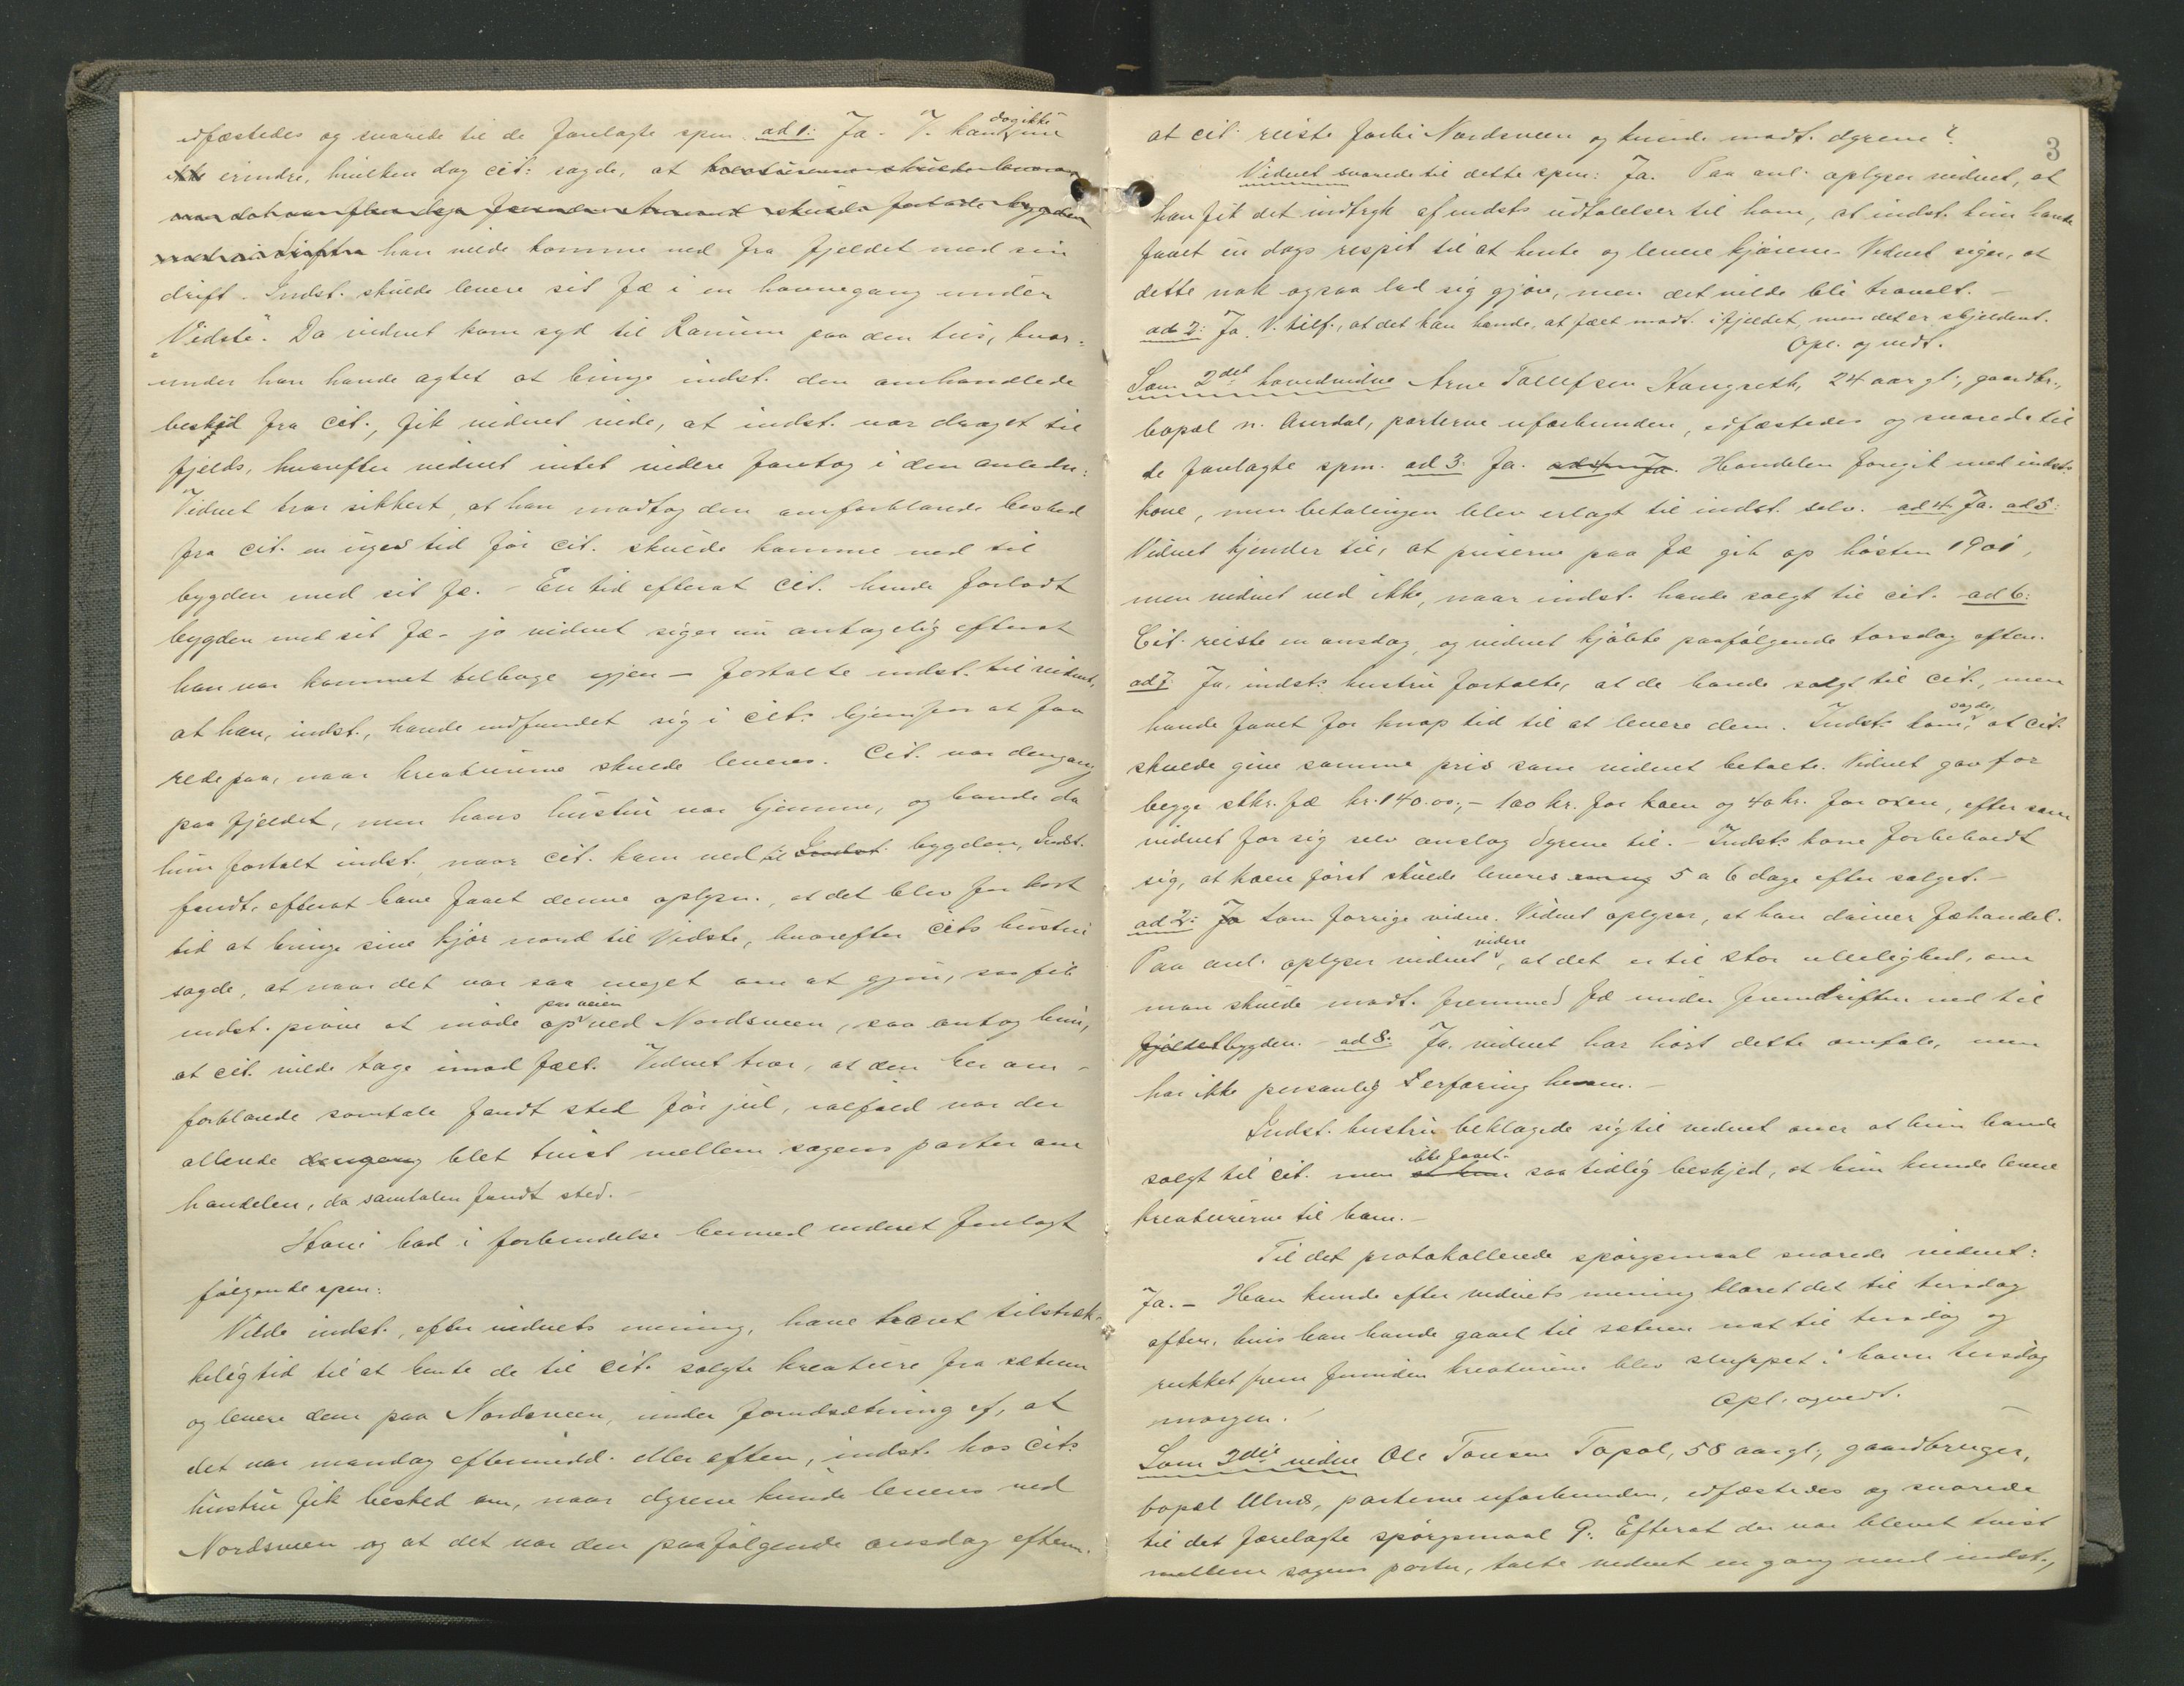 edfæstedes og svarede til de forelagte spm. ad 1: Ja. V. kan dog ikke nu
ikke erindre, hvilken dag cit. sagde, at
han vilde komme ned fra fjeldet med sin
drift. Indst. skulde levere sit fæ i en havnegang under
"Vidste". Da vidnet kom syd til Ranum paa den tur, hvor-
under han havde agtet at bringe indst. den omhandlede
besked fra cit., fik vidnet vide, at indst. var draget til
fjelds, hvorefter vidnet intet videre foretog i den anledn:
Vidnet tror sikkert, at han modtog den omforklarede besked
fra cit. en uges tid før cit. skulde komme ned til
bygden med sit fæ. - En tid efterat cit. havde forladt
bygden med sit fæ - jo vidnet siger nu antagelig efterat
han var kommet tilbage igjen - fortalte indst. til vidnet,
at han, indst., havde indfundet sig i cits hjem for at faa
rede paa, naar kreaturerne skulde leveres. Cit. var dengang
paa fjeldet, men hans hustru var hjemme, og havde da
hun fortalt indst. naar cit. kom ned til Indst. bygden, Indst.
fandt, efterat have faaet denne oplysn., at det blev for kort
tid at bringe sine kjør nord til Vidste, hvorefter cits hustru
sagde, at naar det var saa meget om at gjøre, saa fik
indst. prøve at møde op paa veien ved Nordsveen, saa antog hun,
at cit. vilde tage imod fæet. Vidnet tror, at den her om-
forklarede samtale fandt sted før jul, ialfald var der
allerede dengang blet tvist mellem sagens parter om
handelen, da samtalen fandt sted. -
Hovi bad i forbindelse hermed vidnet forelagt
følgende spm:
Vilde indst., efter vidnets mening, have havt tilstræk-
kelig tid til at hente de til cit. solgte kreature fra sæteren
og levere dem paa Nordsveen, under forudsætning af, at
det var mandag eftermidd. eller aften, indst. hos cits
hustru fik besked om, naar dyrene kunde leveres ved
Nordsveen og at det var den paafølgende onsdag efterm.
3
at cit. reiste forbi Nordsveen og kunde modt. dyrene?
Vidnet svarede til dette spm: Ja. Paa anl. oplyser vidnet, at
han fik det indtryk af indsts udtalelser til ham, at indst. kun havde
faaet en dags respit til at hente og levere kjørene. Vidnet siger, at
dette nok ogsaa lod sig gjøre, men det vilde bli travelt. -
ad 2: Ja. V. tilf., at det kan hende, at fæet modt. i fjeldet, men det er skjeldent.
Opl. og vedt.
Som 2det hovedvidne Arne Tollefsen Kongseth, 24 aar gl., gaardbr.,
bopæl n. Aurdal, parterne uforbunden, edfæstedes og svarede til
de forelagte spm. ad 3: Ja. ad 4: Ja. Handelen foregik med indsts
kone, men betalingen blev erlagt til indst. selv. ad 4. Ja. ad 5:
Vidnet kjender til, at priserne paa fæ gik op høsten 1901,
men vidnet ved ikke, naar indst. havde solgt til cit. ad 6:
Cit. reiste en onsdag, og vidnet kjøbte paafølgende torsdag aften.
ad 7. Ja, indsts hustru fortalte, at de havde solgt til cit., men
havde faaet for knap tid til at levere dem. Indsts kone sagde, at cit.
skulde give samme pris som vidnet betalte. Vidnet gav for
begge stkr. fæ kr. 140.00, - 100 kr. for koen og 40 kr. for oxen, efter som
vidnet for sig selv anslog dyrene til. - Indsts kone forbeholdt
sig, at koen først skulde leveres 5 a 6 dage efter salget. -
ad 2: Ja Som forrige vidne. Vidnet oplyser, at han driver fæhandel.
Paa anl. oplyser vidnet videre, at det er til stor uleilighed, om
man skulde modt. fremmed fæ under fremdriften ned til
fjeldet bygden. - ad 8. Ja, vidnet har hørt dette omtale, men
har ikke personlig erfaring herom. -
Indst. hustru beklagede sig til vidnet over at hun havde
solgt til cit. men ikke faaet saa tidlig beskjed, at hun kunde levere
kreaturerne til ham. -
Til det protokollerede spørgsmaal svarede vidnet:
Ja. - Han kunde efter vidnets mening klaret det til tirsdag
aften, hvis han havde gaaet til sæteren nat til tirsdag og
rukket frem forinden kreaturene blev sluppet i havn tirsdag
morgen. -
Opl. og vedt.
Som 3die vidne Ole Tonsen Topal, 58 aar gl., gaardbruger,
bopæl Ulnes, parterne uforbunden, edfæstedes og svarede
til det forelagte spørgsmaal 9: Efterat der var blevet tvist
mellem sagens parter, talte vidnet en gang med indst.,